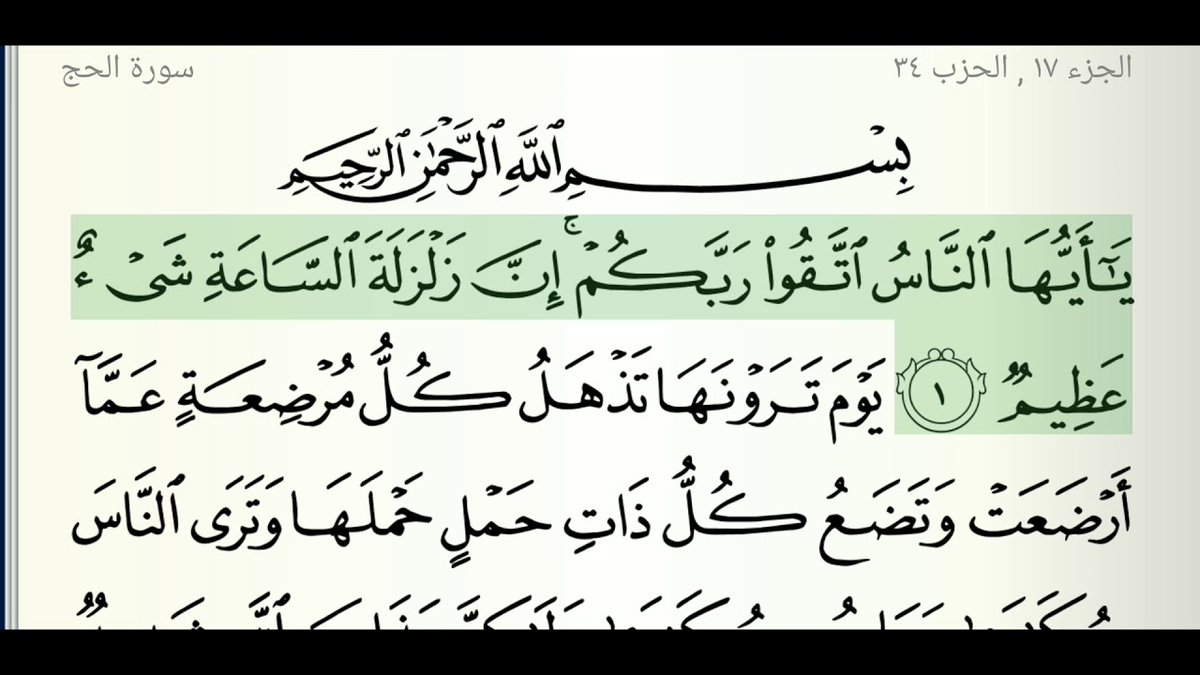 الجزء ١٧ , الحزب ٣٤ سورة الحج
بِسْمِ ٱللَّهِ ٱلرَّحْمَٰنِ ٱلرَّحِيمِ
يَٰٓأَيُّهَا ٱلنَّاسُ ٱتَّقُوا۟ رَبَّكُمْ ۚ إِنَّ زَلْزَلَةَ ٱلسَّاعَةِ شَىْءٌ
عَظِيمٌ ١ يَوْمَ تَرَوْنَهَا تَذْهَلُ كُلُّ مُرْضِعَةٍ عَمَّآ
أَرْضَعَتْ وَتَضَعُ كُلُّ ذَاتِ حَمْلٍ حَمْلَهَا وَتَرَى ٱلنَّاسَ